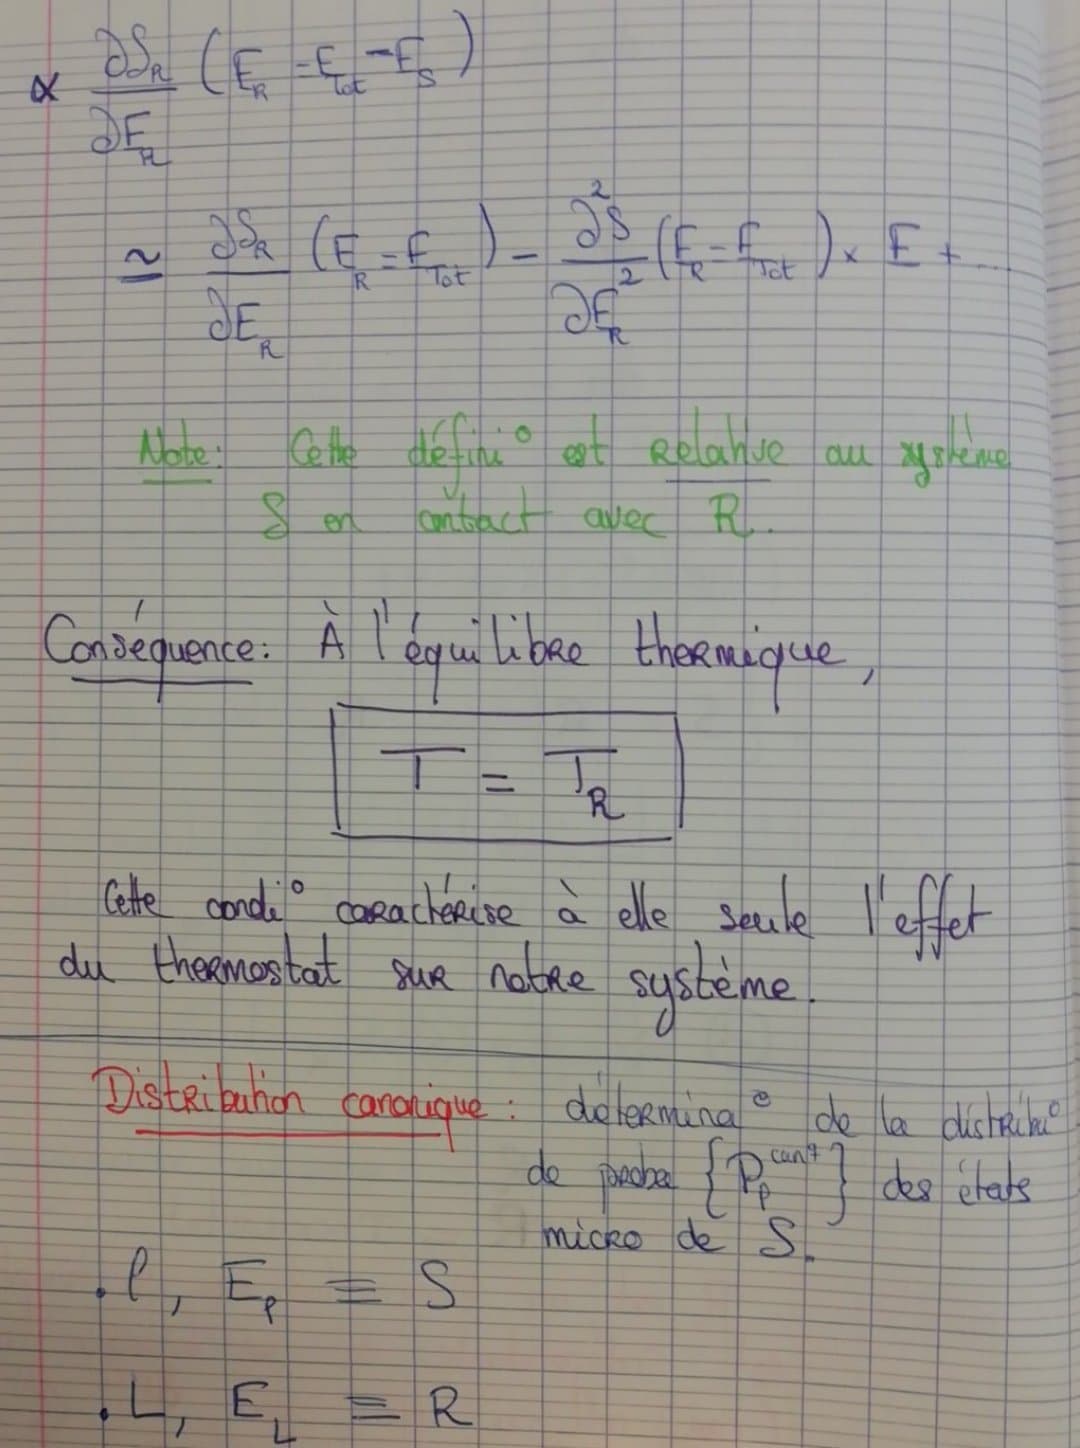 ∝ ∂S_R/∂E_R (E_R = E_Tot - E_S)
≃ ∂S_R/∂E_R (E_R = E_Tot) - ∂²S/∂E_R² (E_R = E_Tot) × E + ...
Note: Cette défini° est Relative au système
S en contact avec R.
Conséquence: À l'équilibre thermique,
T = T_R
Cette condi° caractérise à elle seule l'effet
du thermostat sur notre système.
Distribution canonique : détermina° de la distribu°
de proba {P_p^can q} des états
micro de S.
. l, E_p ≡ S
. L, E_L ≡ R